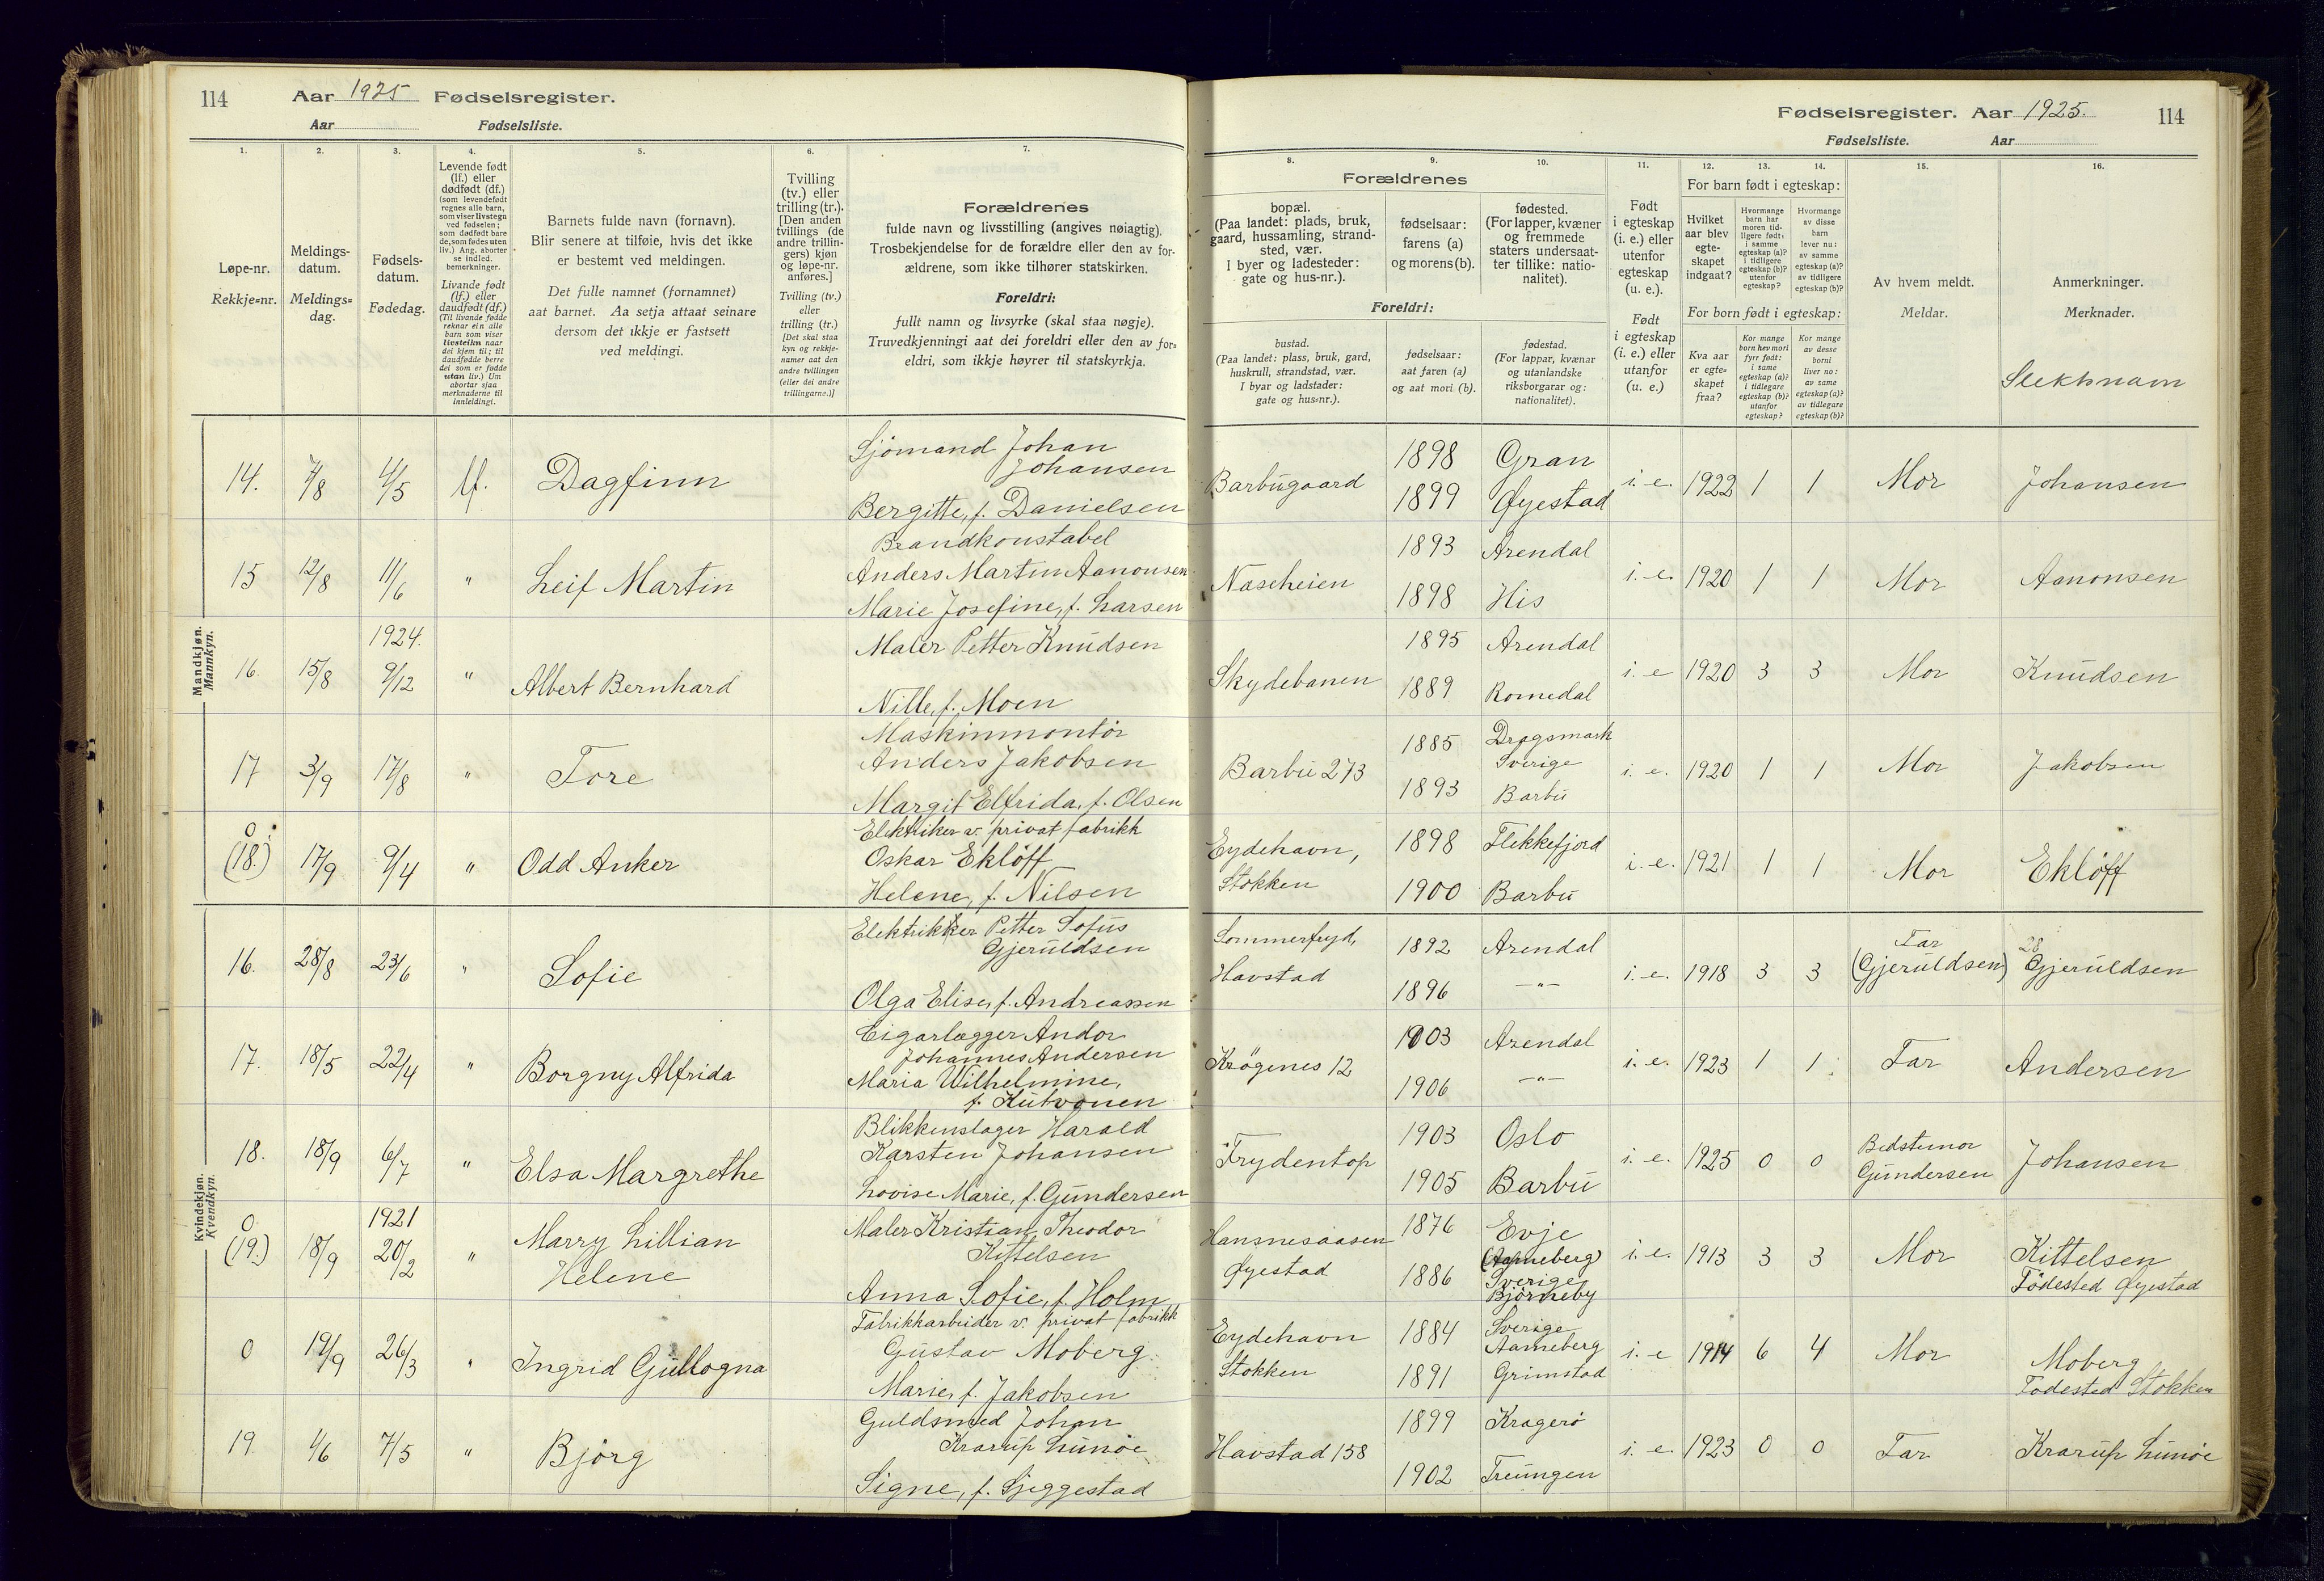 114 Aar 1925 Fødselsregister.
Aar Fødselsliste.
1. 2. 3. 4. 5. 6. 7.
Løpe-nr.
Rekkje-nr.
Meldings-
datum.
Meldings-
dag.
Fødsels-
datum.
Fødedag.
Levende født
(lf.) eller
dødfødt (df.)
(som levendefødt
regnes alle barn,
som viser livstegn
ved fødselen;
som dødfødt bare
de, som fødes uten
liv.) Ang. aborter
se indled.
bemerkninger.
Livande født
(lf.) eller
daudfødt (df.)
(Til livande fødde
reknar ein alle
barn som viser
livsteikn naar
dei kjem til; til
daudfødde berre
dei som er fødde
utan liv.) Um
abortar sjaa
merknaderne til
innleidingi.
Barnets fulde navn (fornavn).
Blir senere at tilføie, hvis det ikke
er bestemt ved meldingen.
Det fulle namnet (fornamnet)
aat barnet. Aa setja attaat seinare
dersom det ikkje er fastsett
ved meldingi.
Tvilling
(tv.) eller
trilling (tr.).
[Den anden
tvillings (de
andre trillin-
gers) kjøn
og løpe-nr.
anføres.]
Tvilling (tv.)
eller
trilling (tr.)
[Det skal staa
kyn og rekkje-
numer aat den
andre tvillingen
(eller dei andre
trillingarne.)]
Forældrenes
fulde navn og livsstilling (angives nøiagtig).
Trosbekjendelse for de forældre eller den av for-
ældrene, som ikke tilhører statskirken.
Foreldri:
fullt namn og livsyrke (skal staa nøgje).
Truvedkjenningi aat dei foreldri eller den av for-
eldri, som ikkje høyrer til statskyrkja.
Mandkjøn.
Mannkyn.
14. 7/8 4/5 lf. Dagfinn
Sjömand Johan
Johansen
Bergitte, f. Danielsen
15 12/8 11/6 " Leif Martin
Brandkonstabel
Anders Martin Aanonsen
Marie Josefine, f. Larsen
1924.
16 15/8 9/12 " Albert Bernhard
Maler Petter Knudsen
Nille, f. Moen
17 3/9 17/8 " Tore
Maskinmontör
Anders Jakobsen
Margit Elfrida, f. Olsen
0
(18.) 17/9 9/4 " Odd Anker
Elektriker v. privat fabrikk
Oskar Eklöff
Helene, f. Nilsen
Kvindekjøn.
Kvendkyn.
16. 28/8 23/6 " Sofie
Elektrikker Petter Sofus
Gjeruldsen
Olga Elise, f. Andreassen
17. 18/5 22/4 " Borgny Alfrida
Cigarlægger Andor
Johannes Andersen
Maria Wilhelmine,
f. Kutvonen
18. 18/9 6/7 " Elsa Margrethe
Blikkenslager Harald
Karsten Johansen
Lovise Marie, f. Gundersen
0 1921
(19.) 18/9 20/2 " Marry Lillian
Helene
Maler Kristian Theodor
Kittelsen
Anna Sofie, f. Holm
0 19/9 26/3 " Ingrid Gullogna
Fabrikkarbeider v. privat fabrikk
Gustav Moberg.
Marie, f. Jakobsen
19. 4/6 7/5 " Bjørg
Guldsmed Johan
Krarup Lunöe
Signe, f. Sjeggestad
Fødselsregister. Aar 1925. 114
Fødselsliste. Aar
8. 9. 10. 11. 12. 13. 14. 15. 16.
Forældrenes
bopæl.
(Paa landet: plads, bruk,
gaard, hussamling, strand-
sted, vær.
I byer og ladesteder:
gate og hus-nr.).
fødselsaar:
farens (a)
og morens (b).
fødested.
(For lapper, kvæner
og fremmede
staters undersaat-
ter tillike: natio-
nalitet).
Foreldri:
bustad.
(Paa landet: plass, bruk, gard,
huskrull, strandstad, vær.
I byar og ladstader:
gate og hus-nr.).
fødselsaar:
aat faren (a)
og aat mori (b).
fødestad.
(For lappar, kvænar
og utanlandske
riksborgarar og:
nationalitet).
Født
i egteskap
(i. e.) eller
utenfor
egteskap
(u. e.).
Født
i egteskap
(i. e.) eller
utanfor
(u. e.)
For barn født i egteskap:
Hvilket
aar blev
egte-
skapet
indgaat?
Hvormange
barn har
moren tid-
ligere født:
i samme
egteskap (a)?
i tidligere
egteskap (b)?
utenfor
egteskap?
Hvormange
av disse
barn
lever nu:
av samme
egteskap (a)?
av tidligere
egteskap (b)?
For born født i egteskap:
Kva aar
er egte-
skapet
fraa?
Kor mange
born hev mori
fyrr født:
i same
egteskap (a)?
i tidlegare
egteskap (b)?
utanfor
egteskap?
Kor mange
av desse
borni
liver no:
av same
egteskap (a)?
av tidlegare
egteskap (b)?
Av hvem meldt.
Meldar.
Anmerkninger.
Merknader.
Slektsnam
Barbugaard 1898 Gran i. e. 1922 1 1 Mor Johansen
1899 Øyestad
Nascheien 1893 Arendal i. e. 1920 1 1 Mor Aanonsen
1898 His
Skydebanen 1895 Arendal i. e 1920 3 3 Mor Knudsen
1889 Romedal
Barbu 273 1885 Dragsmark
Sverige i. e. 1920 1 1 Mor Jakobsen
1893 Barbu
Eydehavn,
Stokken 1898 Flekkefjord i. e. 1921 1 1 Mor Eklöff
1900 Barbu
Sommerfryd,
Havstad 1892 Arendal i. e. 1918 3 3 Far
(Gjeruldsen) 28
Gjeruldsen
1896 —"—
Krögenes 12 1903 Arendal i. e. 1923 1 1 Far Andersen
1906 —"—
Frydentop 1903 Oslo i. e. 1925 0 0 Bedstemor
Gundersen Johansen
1905 Barbu
Hansnesaasen
Øyestad 1876 Evje i. e. 1913 3 3 Mor Kittelsen
Födested Øyestad
1886 Sverige
Björneby
Eydehavn
Stokken 1884 Sverige
Aarneberg i. e 1914 6 4 Mor Moberg
Födested Stokken
1891 Grimstad
Havstad 158 1899 Kragerö i. e. 1923 0 0 Far Krarup Lunöe
1902 Treungen